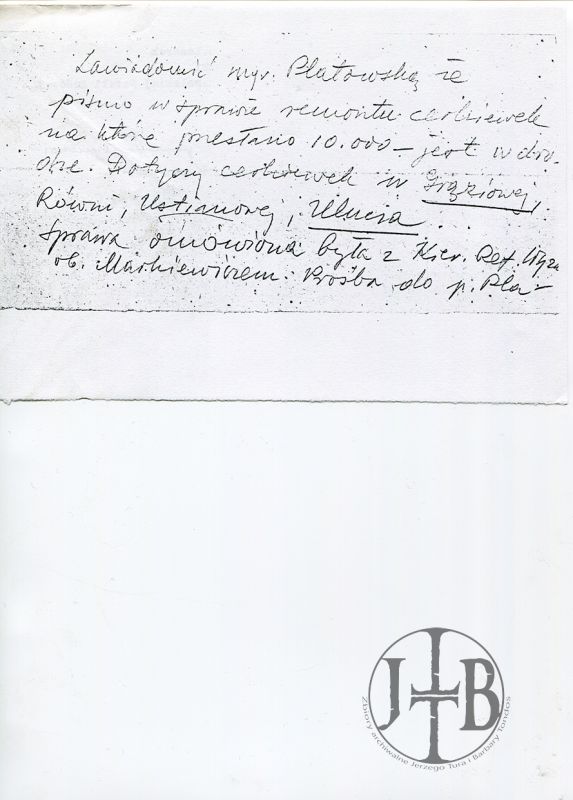 Zawiadomić mgr. Platowską że
pismo w sprawie remontu cerkiewek
na które przesłano 10.000 – jest w dro-
dze. Dotyczy cerkiewek w Grąziowej,
Równi, Ustianowej, Ulucza.
Sprawa omówiona była z Kier. Ref. Wyzn
ob. Markiewiczem. Prośba do p. Pla-
JTB
Zbiory archiwalne Jerzego Tura i Barbary Tondos